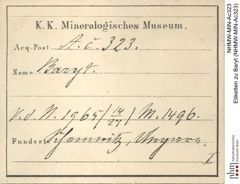 K. K. Mineralogisches Museum.
Acq. Post A. č 323.
Name Baryt.
V. d. N. 1965/ 14/27 / M. 1496.
Fundort Schemnitz, Ungarn.
I
NHMW-MIN-Ac323
Etiketten zu Baryt (NHMW-MIN-Ac323)
nhm